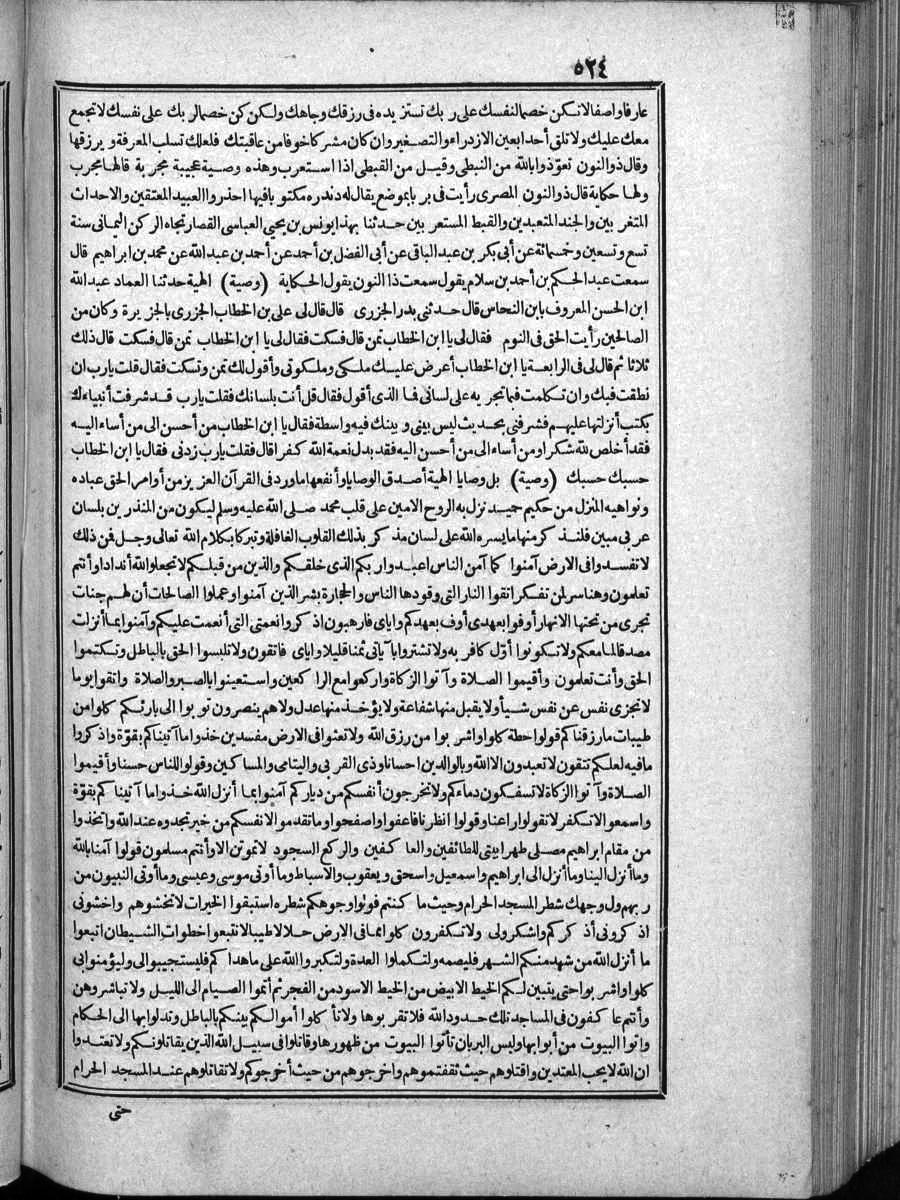 ٥٢٤
عارفا واصفا لا تكن خصما لنفسك على ربك تستزيده فى رزقك وجاهك ولكن كن خصما لربك على نفسك لا تجمع
معك عليك ولا تلق أحدا بعين الازدراء والتصغير وان كان مشركا خوفا من عاقبتك فلعلك تسلب المعرفة ويرزقها
وقال ذو النون تعوّذوا بالله من النبطى وقيل من القبطى اذا استعرب وهذه وصية عجيبة مجربة قالها مجرب
ولها حكاية قال ذو النون المصرى رأيت فى بر با بموضع يقال له دندره مكتوبا فيها احذروا العبيد المعتقين والاحداث
المتغربين والجند المتعبدين والقبط المستعربين حدثنا بهذا يونس بن يحيى العباسى القصار تجاه الركن اليمانى سنة
تسع وتسعين وخمسائة عن أبى بكر بن عبد الباقى عن أبى الفضل بن أحمد عن أحمد بن عبد الله عن محمد بن ابراهيم قال
سمعت عبد الحكم بن أحمد بن سلام يقول سمعت ذا النون يقول الحكاية (وصية) الهية حدثنا العماد عبد الله
ابن الحسن المعروف بابن النحاس قال حدثنى بدر الجزرى قال قال لى على بن الخطاب الجزرى بالجزيرة وكان من
الصالحين رأيت الحق فى النوم فقال لى يا ابن الخطاب تمن قال فسكت فقال لى يا ابن الخطاب تمن قال فسكت قال ذلك
ثلاثا ثم قال لى فى الرابعة يا ابن الخطاب أعرض عليك ملكى وملكوتى وأقول لك تمن وتسكت فقال قلت يا رب ان
نطقت فبك وان تكلمت فبما تجريه على لسانى فما الذى أقول فقال قل أنت بلسانك فقلت يا رب قد شرفت أنبياءك
بكتب أنزلتها عليهم فشرفنى بحديث ليس بينى وبينك فيه واسطة فقال يا ابن الخطاب من أحسن الى من أساء اليه
فقد أخلص لله شكرا ومن أساء الى من أحسن اليه فقد بدل نعمة الله كفرا قال فقلت يا رب زدنى فقال يا ابن الخطاب
حسبك حسبك (وصية) بل وصايا الهية أصدق الوصايا وأنفعها ما ورد فى القرآن العزيز من أوامر الحق عباده
ونواهيه المنزل من حكيم حميد نزل به الروح الامين على قلب محمد صلى الله عليه وسلم ليكون من المنذرين بلسان
عربى مبين فلنذكر منها ما يسره الله على لسان مذكر بذلك القلوب الغافلة وتبركا بكلام الله تعالى وجل فمن ذلك
لا تفسدوا فى الارض آمنوا كما آمن الناس اعبدوا ربكم الذى خلقكم والذين من قبلكم لا تجعلوا لله أندادا وأنتم
تعلمون وهنا سر لمن تفكر اتقوا النار التى وقودها الناس والحجارة بشر الذين آمنوا وعملوا الصالحات أن لهم جنات
تجرى من تحتها الانهار أوفوا بعهدى أوف بعهدكم واياى فارهبون اذكروا نعمتى التى أنعمت عليكم وآمنوا بما أنزلت
مصدقا لما معكم ولا تكونوا أوّل كافر به ولا تشتروا بآياتى ثمنا قليلا واياى فاتقون ولا تلبسوا الحق بالباطل وتكتموا
الحق وأنت تعلمون وأقيموا الصلاة وآتوا الزكاة واركعوا مع الراكعين واستعينوا بالصبر والصلاة واتقوا يوما
لا تجزى نفس عن نفس شيأ ولا يقبل منها شفاعة ولا يؤخذ منها عدل ولا هم ينصرون توبوا الى بارئكم كلوا من
طيبات ما رزقناكم قولوا حطة كلوا واشربوا من رزق الله ولا تعثوا فى الارض مفسدين خذوا ما آتيناكم بقوّة واذكروا
ما فيه لعلكم تتقون لا تعبدون الا الله وبالوالدين احسانا وذى القربى واليتامى والمساكين وقولوا للناس حسنا وأقيموا
الصلاة وآتوا الزكاة لا تسفكون دماءكم ولا تخرجون أنفسكم من دياركم آمنوا بما أنزل الله خذوا ما آتيناكم بقوّة
واسمعوا لا تكفر لا تقولوا راعنا وقولوا انظرنا فاعفوا واصفحوا وما تقدموا لانفسكم من خير تجدوه عند الله واتخذوا
من مقام ابراهيم مصلى طهرا بيتى للطائفين والعاكفين والركع السجود لا تموتن الا وأنتم مسلمون قولوا آمنا بالله
وما أنزل الينا وما أنزل الى ابراهيم واسمعيل واسحق ويعقوب والاسباط وما أوتى موسى وعيسى وما أوتى النبيون من
ربهم ول وجهك شطر المسجد الحرام وحيث ما كنتم فولوا وجوهكم شطره استبقوا الخيرات لا تخشوهم واخشونى
اذكرونى أذكركم واشكروا لى ولا تكفرون كلوا مما فى الارض حلالا طيبا لا تتبعوا خطوات الشيطان اتبعوا
ما أنزل الله من شهد منكم الشهر فليصمه ولتكملوا العدة ولتكبروا الله على ما هداكم فليستجيبوا لى وليؤمنوا بى
كلوا واشربوا حتى يتبين لكم الخيط الابيض من الخيط الاسود من الفجر ثم أتموا الصيام الى الليل ولا تباشروهن
وأنتم عاكفون فى المساجد تلك حدود الله فلا تقربوها ولا تأكلوا أموالكم بينكم بالباطل وتدلوا بها الى الحكام
واتوا البيوت من أبوابها وليس البر بان تأتوا البيوت من ظهورها وقاتلوا فى سبيل الله الذين يقاتلونكم ولا تعتدوا
ان الله لا يحب المعتدين واقتلوهم حيث ثقفتموهم واخرجوهم من حيث أخرجوكم ولا تقاتلوهم عند المسجد الحرام
حتى